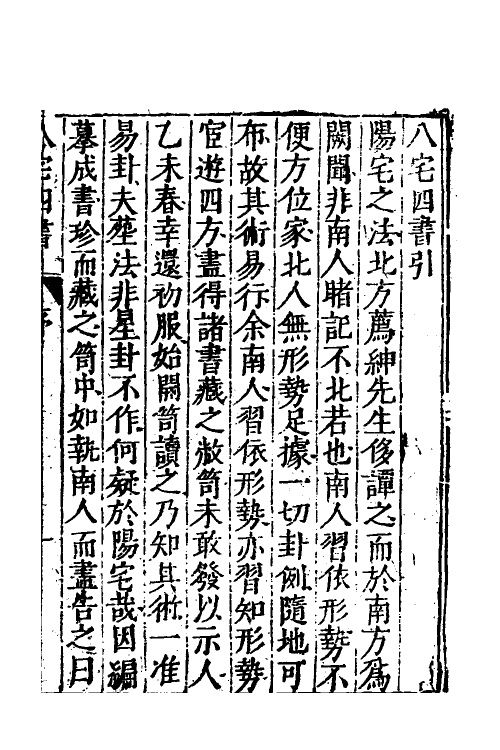 八宅四書引
陽宅之法北方薦紳先生侈譚之而於南方爲
闕聞非南人睹記不北若也南人習依形勢不
便方位家北人無形勢足據一切卦例隨地可
布故其術易行余南人習依形勢亦習知形勢
宦遊四方盡得諸書藏之敝笥未敢發以示人
乙未春幸還初服始開笥讀之乃知其術一准
易卦夫塟法非星卦不作何疑於陽宅哉因編
摹成書珍而藏之笥中如執南人而盡告之曰
八宅四書 序